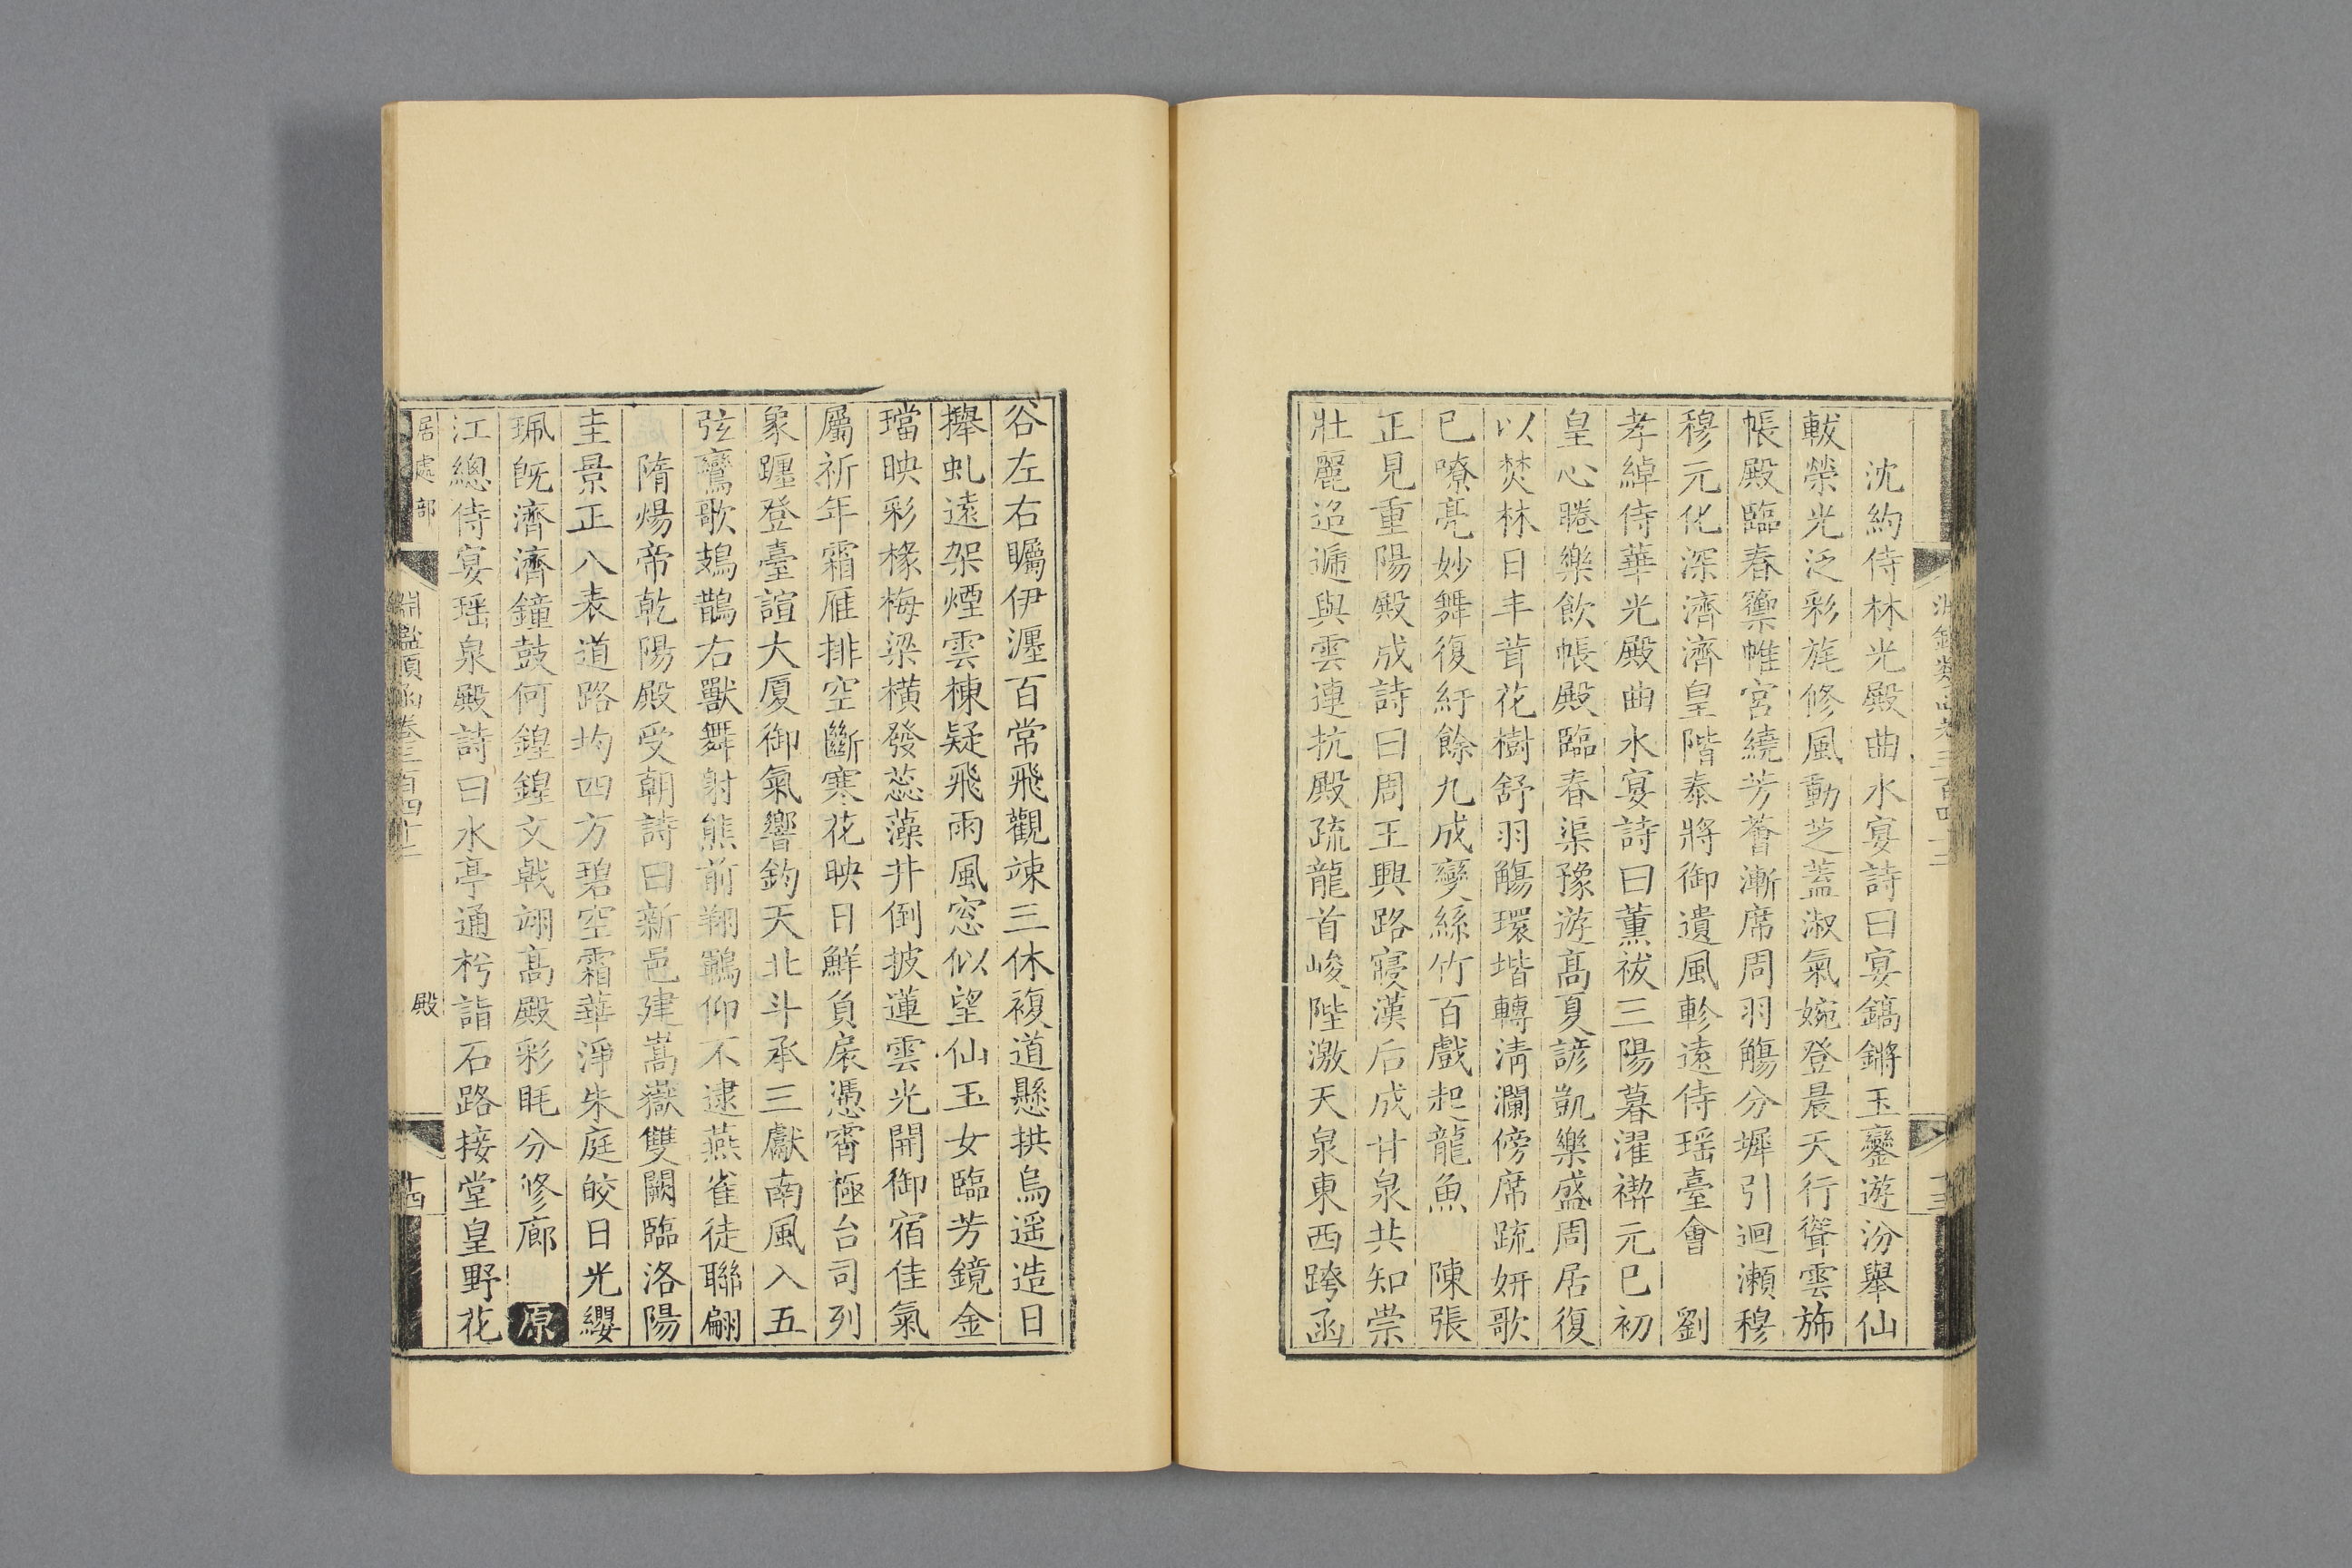 沈約侍林光殿曲水宴詩曰宴鎬鏘玉鑾遊汾舉仙
軷榮光泛彩旄修風動芝蓋淑氣婉登晨天行聳雲斾
帳殿臨春籞帷宮繞芳薈漸席周羽觴分墀引迴瀨穆
穆元化深濟濟皇階泰將御遺風軫遠侍瑶臺會　劉
孝綽侍華光殿曲水宴詩曰薰祓三陽暮濯禊元巳初
皇心睠樂飲帳殿臨春渠豫遊髙夏諺凱樂盛周居復
以焚林日丰茸花樹舒羽觴環堦轉清瀾傍席疏妍歌
已嘹亮妙舞復紆餘九成變絲竹百戲起龍魚　陳張
正見重陽殿成詩曰周王興路寢漢后成甘泉共知崇
壯麗迢遞與雲連抗殿疏龍首峻陛激天泉東西跨函
谷左右矚伊瀍百常飛觀竦三休複道懸拱烏遥造日
攑虬遠架煙雲棟疑飛雨風窓似望仙玉女臨芳鏡金
璫映彩椽梅梁橫發蕊藻井倒披蓮雲光開御宿佳氣
屬祈年霜雁排空斷寒花映日鮮負扆憑霄極台司列
象躔登臺諠大厦御氣響鈞天北斗承三獻南風入五
弦鸞歌鳷鵲右獸舞射熊前翔鶤仰不逮燕雀徒聯翩
隋煬帝乾陽殿受朝詩曰新邑建嵩嶽雙闕臨洛陽
圭景正八表道路均四方碧空霜華淨朱庭皎日光纓
珮旣濟濟鐘鼓何鍠鍠文戟翊髙殿彩眊分修廊　原
江總侍宴瑶泉殿詩曰水亭通枍詣石路接堂皇野花
居處部
淵鑑類函卷三百四十三
殿
十四